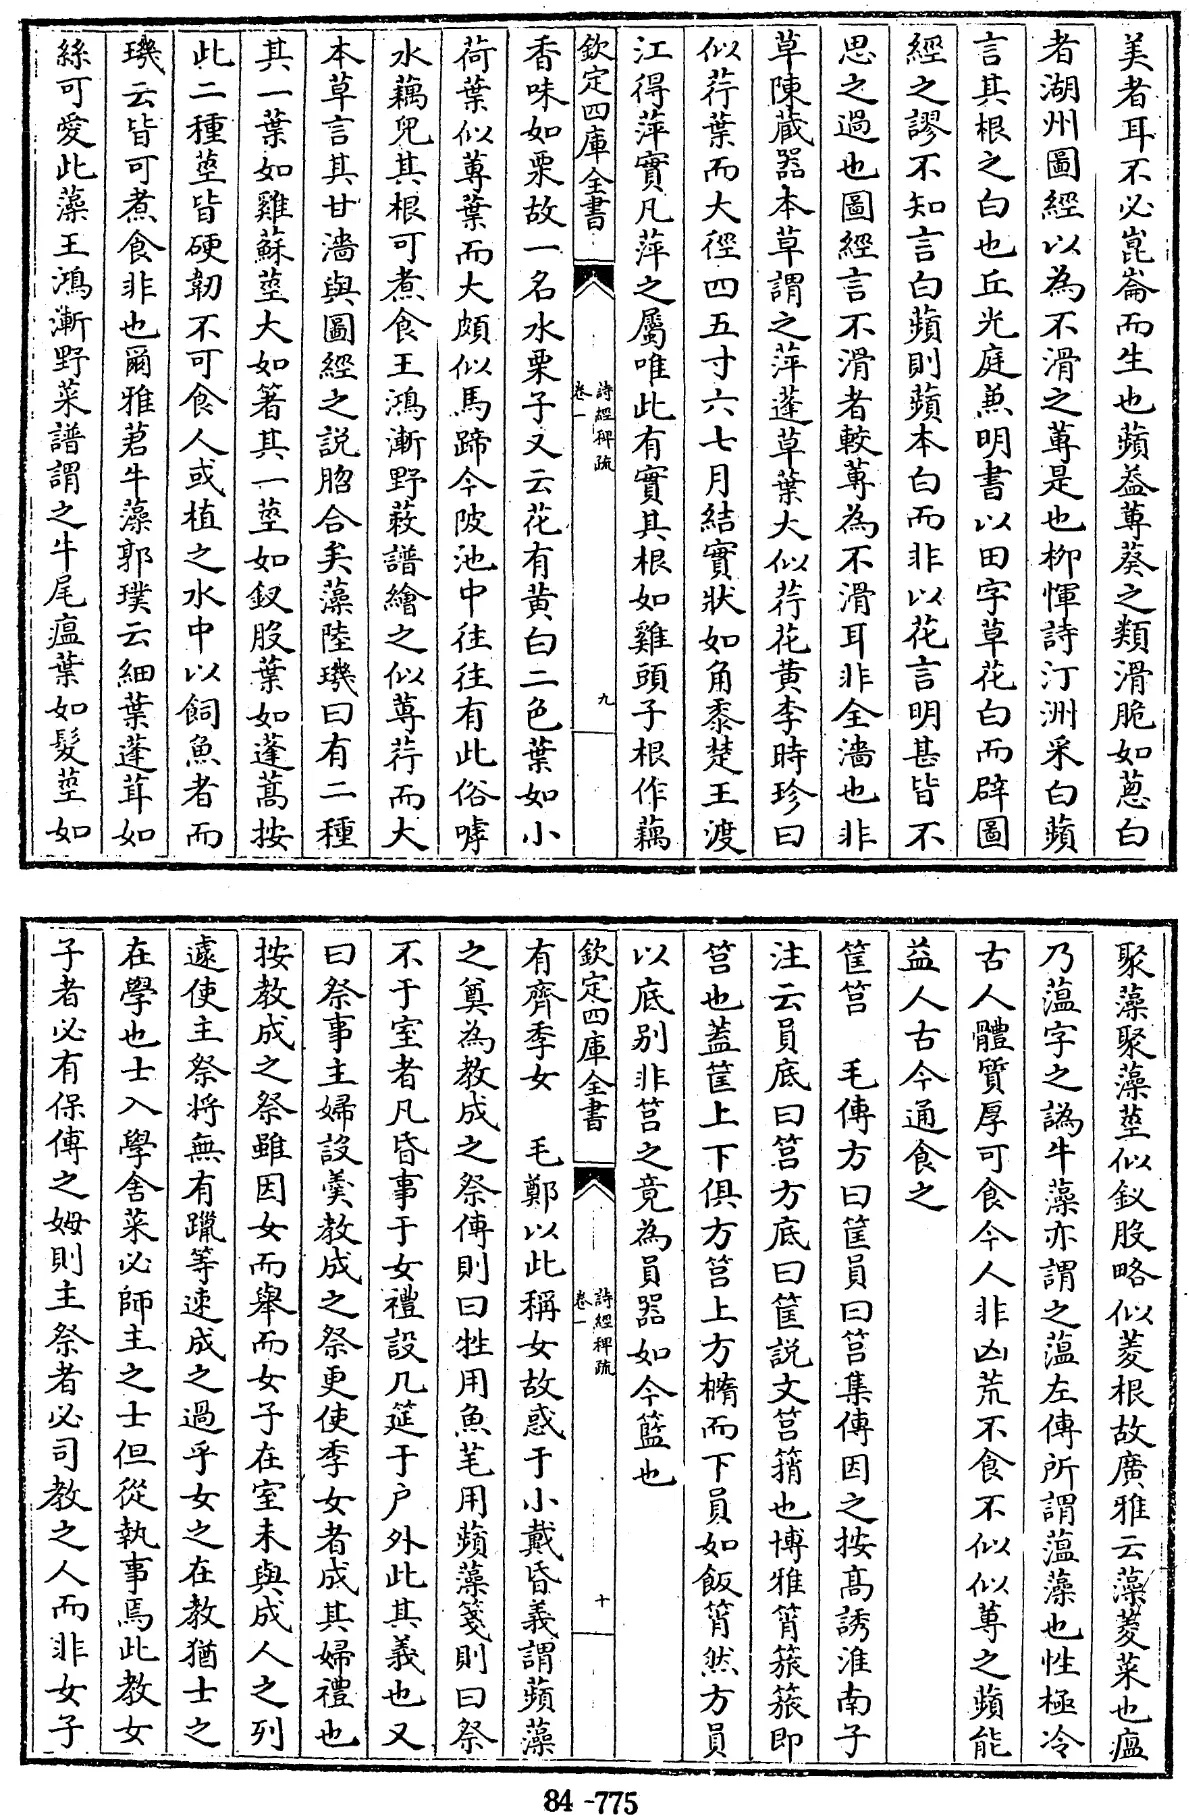 美者耳不必崑崙而生也蘋益蓴葵之類滑脆如蔥白
者湖州圖經以為不滑之蓴是也柳惲詩汀洲采白蘋
言其根之白也丘光庭兼明書以田字草花白而辟圖
經之謬不知言白蘋則蘋本白而非以花言明甚皆不
思之過也圖經言不滑者較蓴為不滑耳非全濇也非
草陳蔵器本草謂之萍蓬草葉大似荇花黄李時珍曰
似荇葉而大徑四五寸六七月結實狀如角黍楚王渡
江得萍實凡萍之屬唯此有實其根如雞頭子根作藕
欽定四庫全書
詩經稗疏
卷一
九
香味如栗故一名水栗子又云花有黄白二色葉如小
荷葉似蓴葉而大頗似馬蹄今陂池中往往有此俗嘑
水藕兒其根可煮食王鴻漸野蔌譜繪之似蓴荇而大
本草言其甘濇與圖經之説脗合矣藻陸璣曰有二種
其一葉如雞蘇莖大如箸其一莖如釵股葉如蓬蒿按
此二種莖皆硬韌不可食人或植之水中以飼魚者而
璣云皆可煮食非也爾雅莙牛藻郭璞云細葉蓬茸如
絲可愛此藻王鴻漸野菜譜謂之牛尾瘟葉如髮莖如
聚藻聚藻莖似釵股略似菱根故廣雅云藻菱菜也瘟
乃薀字之譌牛藻亦謂之薀左傳所謂薀藻也性極冷
古人體質厚可食今人非凶荒不食不似似蓴之蘋能
益人古今通食之
筐筥 毛傳方曰筐員曰筥集傳因之按髙誘淮南子
注云員底曰筥方底曰筐説文筥䈰也博雅筲簇簇即
筥也蓋筐上下俱方筥上方橢而下員如飯筲然方員
以底别非筥之竟為員器如今籃也
欽定四庫全書
詩經稗疏
卷一
十
有齊季女 毛鄭以此稱女故惑于小戴昏義謂蘋藻
之奠為教成之祭傳則曰牲用魚芼用蘋藻箋則曰祭
不于室者凡昏事于女禮設几筵于户外此其義也又
曰祭事主婦設羮教成之祭更使季女者成其婦禮也
按教成之祭雖因女而舉而女子在室未與成人之列
遽使主祭將無有躐等速成之過乎女之在教猶士之
在學也士入學舍菜必師主之士但從執事焉此教女
子者必有保傅之姆則主祭者必司教之人而非女子
84-775